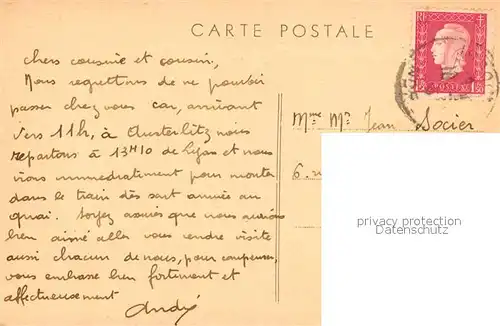 CARTE POSTALE
RF
1f50 POSTES 1f50
Chers cousine et cousin,
Nous regrettons de ne pouvoir
passer chez vous car, arrivant
vers 11h, à Austerlitz nous
repartons à 13H10 de Lyon et nous
irons immédiatement pour monter
dans le train dès sont arrivée au
quai. Soyez assurés que nous aurions
bien aimé aller vous rendre visite
aussi chacun de nous, pour compenser,
vous embrasse bien fortement et
affectueusement
André
Mme Mr Jean Socier
6.
privacy protection
Datenschutz